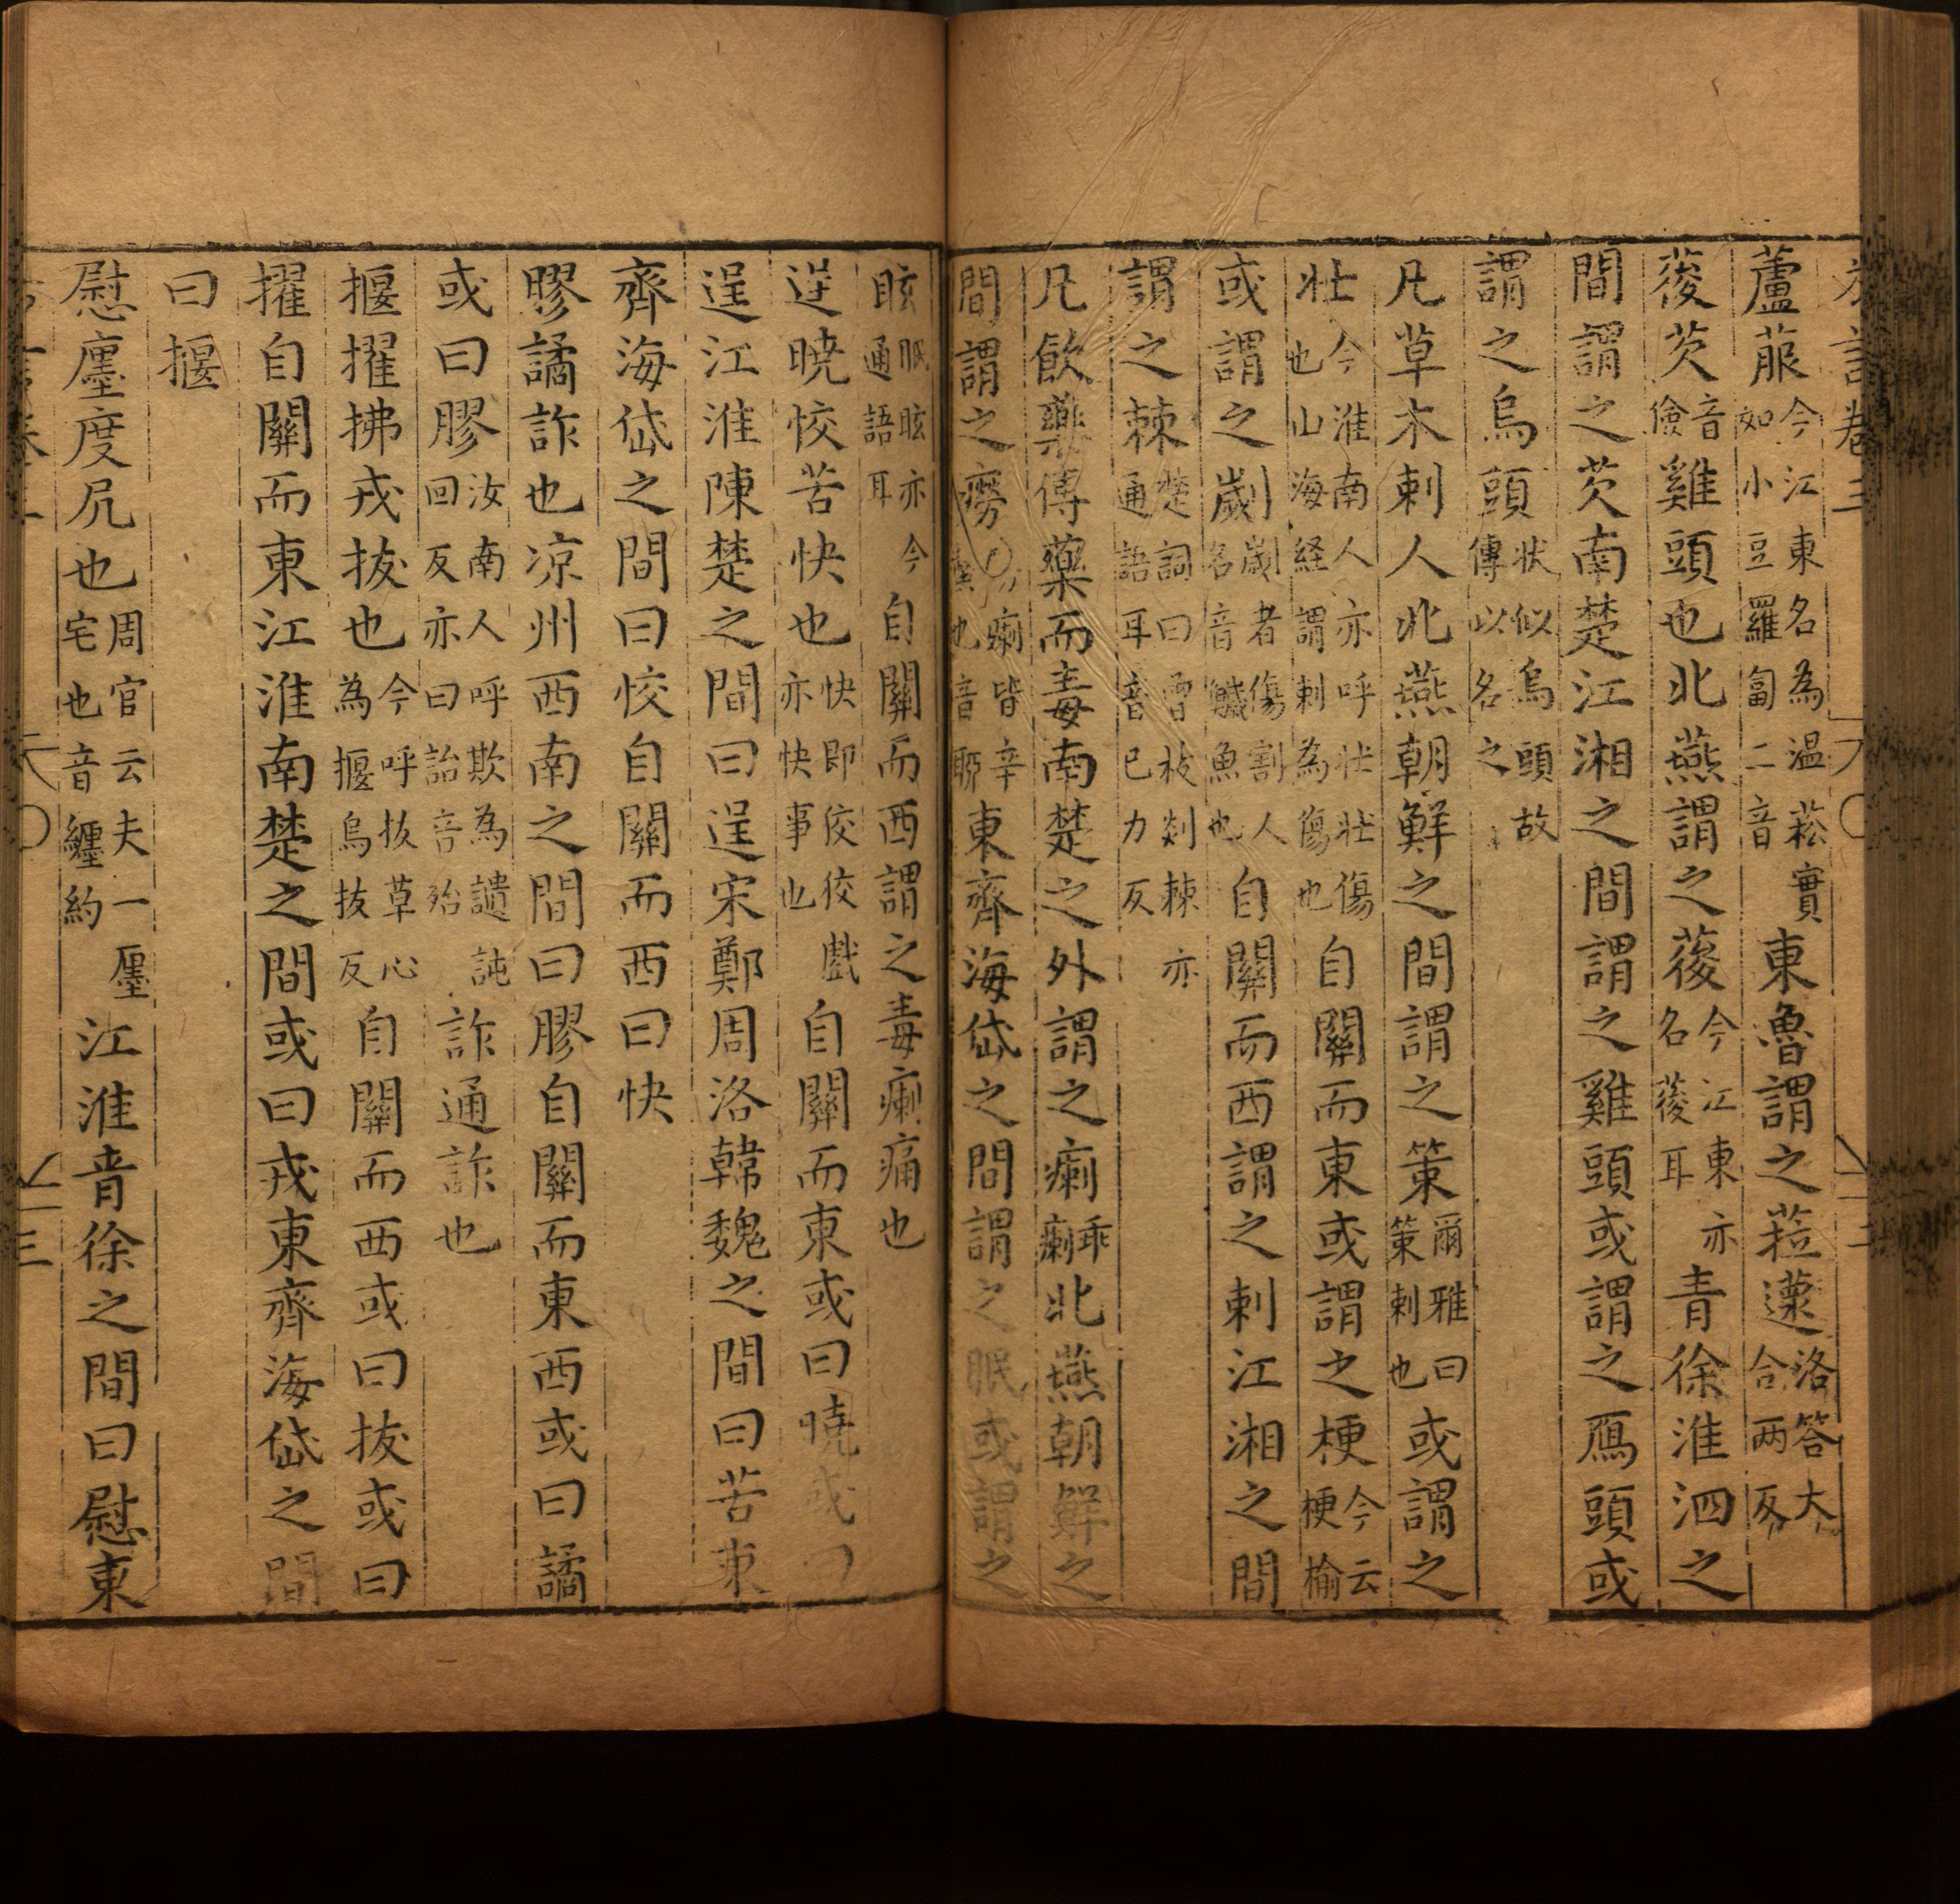 蘆菔今江東名為温菘實如小豆羅匐二音東魯謂之菈䕢洛答大合兩反
䓈芡音儉雞頭也北燕謂之䓈今江東亦名䓈耳青徐淮泗之
間謂之芡南楚江湘之間謂之雞頭或謂之鴈頭或
謂之烏頭狀似烏頭故傳以名之
凡草木刺人北燕朝鮮之間謂之策爾雅曰策刺也或謂之
壯今淮南人亦呼壯壯傷也山海経謂刺為傷也自關而東或謂之梗今云梗榆
或謂之劌劌者傷割人名音鱥魚也自關而西謂之刺江湘之間
謂之棘楚詞曰曾枝剡棘亦通語耳音已力反
凡飲藥傅藥而毒南楚之外謂之瘌乖瘌北燕朝鮮之
間謂之癆癆瘌皆辛螫也音聊東齊海岱之間謂之眠或謂之
眩眠眩亦今通語耳自關而西謂之毒瘌痛也
逞曉恔苦快也快即佼佼戲亦快事也自關而東或曰曉或曰
逞江淮陳楚之間曰逞宋鄭周洛韓魏之間曰苦東
齊海岱之間曰恔自關而西曰快
膠譎詐也凉州西南之間曰膠自關而東西或曰譎
或曰膠汝南人呼欺為譴訰回反亦曰詒音殆詐通詐也
揠擢拂戎拔也今呼拔草心為揠烏拔反自關而西或曰拔或曰
擢自關而東江淮南楚之間或曰戎東齊海岱之間
曰揠
慰廛度凥也周官云夫一廛宅也音纏約江淮青徐之間曰慰東